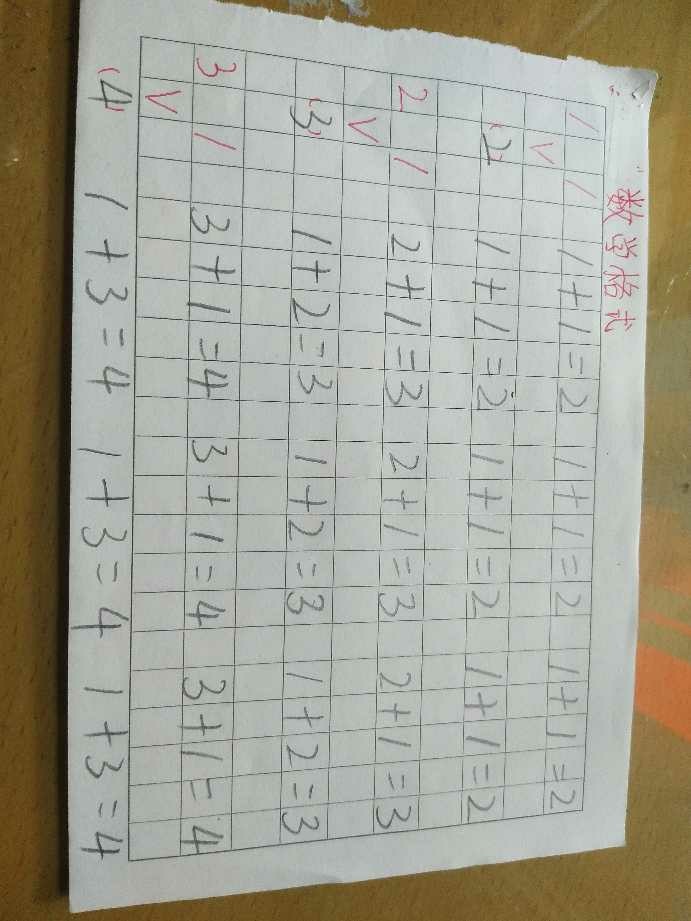 数学格式
1 1 1+1=2 1+1=2 1+1=2
V
(2) 1+1=2 1+1=2 1+1=2
2 1 2+1=3 2+1=3 2+1=3
V
(3) 1+2=3 1+2=3 1+2=3
3 1 3+1=4 3+1=4 3+1=4
V
(4) 1+3=4 1+3=4 1+3=4